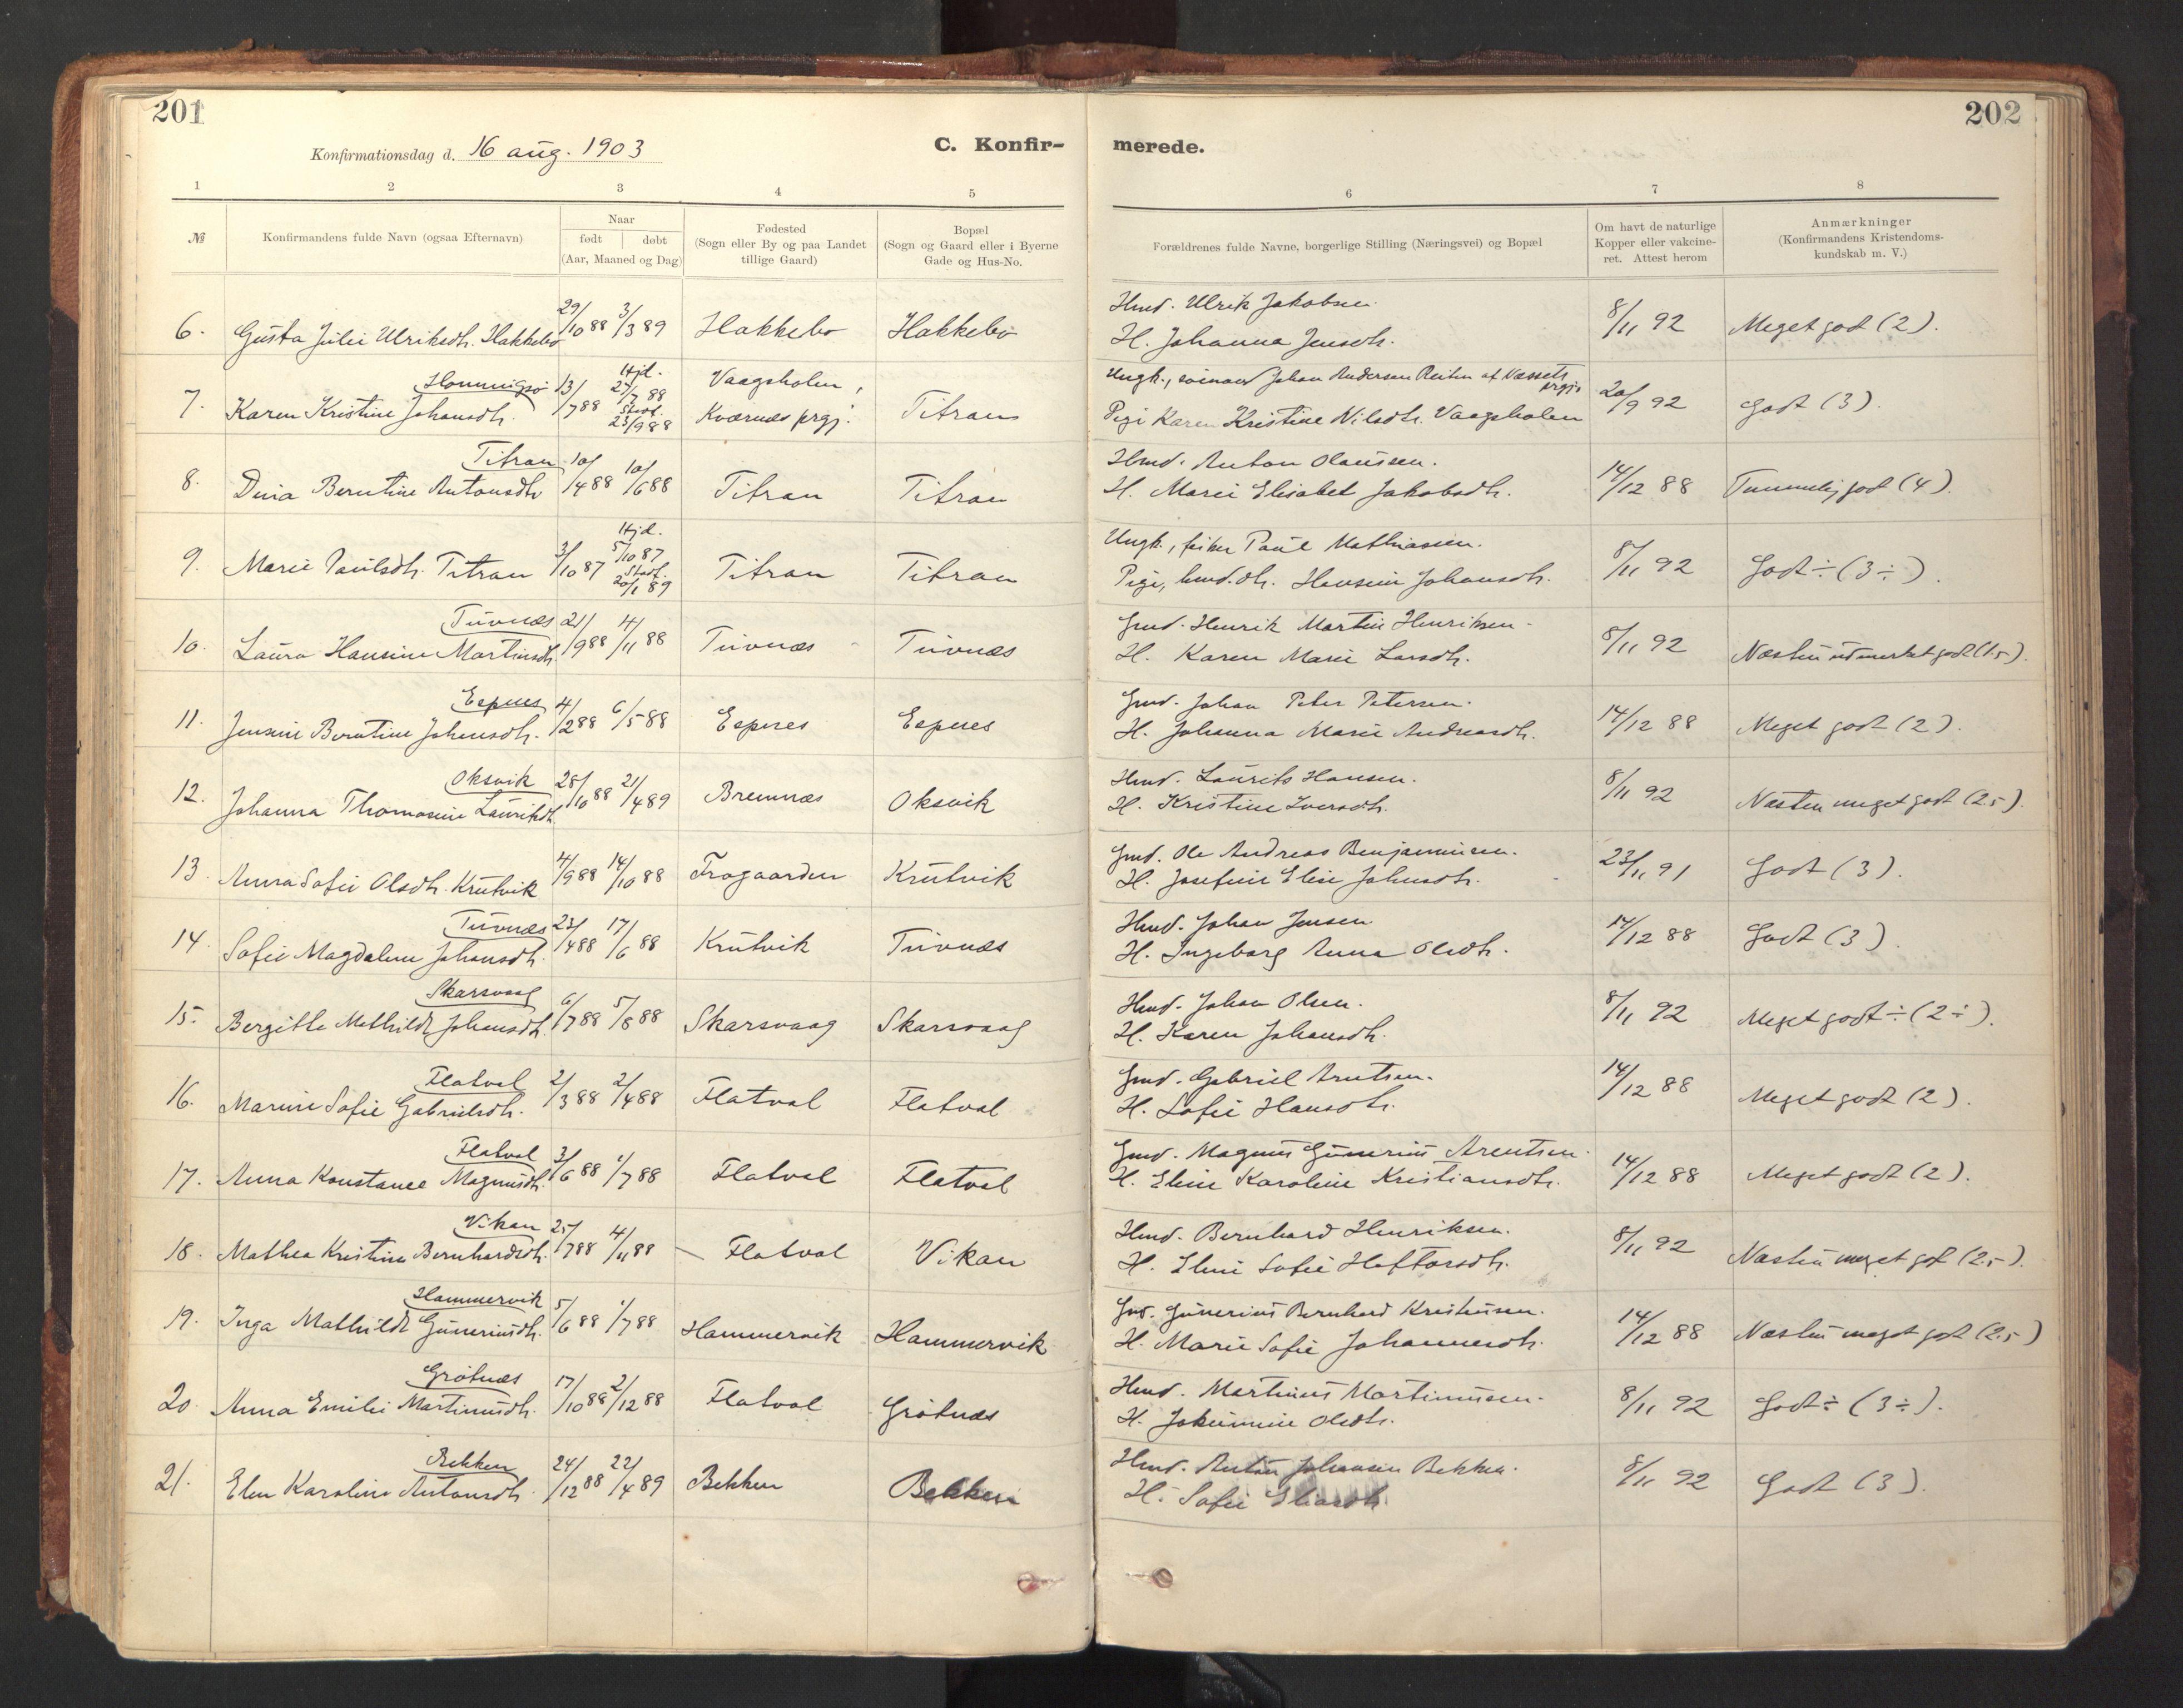 201
202
Konfirmationsdag d. 16 aug. 1903
C. Konfir-
merede.
1 2 3 4 5 6 7 8
№
Konfirmandens fulde Navn (ogsaa Efternavn)
Naar
født døbt
(Aar, Maaned og Dag)
Fødested
(Sogn eller By og paa Landet
tillige Gaard)
Bopæl
(Sogn og Gaard eller i Byerne
Gade og Hus-No.
Forældrenes fulde Navne, borgerlige Stilling (Næringsvei) og Bopæl
Om havt de naturlige
Kopper eller vakcine-
ret. Attest herom
Anmærkninger
(Konfirmandens Kristendoms-
kundskab m. V.)
6. Gusta Julie Ulriksdtr. Hakkebo 29/10 88 3/3 89 Hakkebo Hakkebo
Hmd. Ulrik Jakobsen.
H. Johanna Jensdtr.
8/11 92 Meget godt (2).
7. Karen Kristine Johansdtr. 13/7 88
Hjd.
27/7 88
Stadf.
23/9 88
Vaagsholen,
Kværnæs prgj. Titran
Ungk., Johan Andersen Reiten af Næssets
prgj.
Pige Karen Kristine Nilsdtr. Vaagsholen
20/9 92 Godt (3).
Titran
8. Dina Berntine Antonsdtr 10/4 88 10/6 88 Titran Titran
Hmd. Anton Olaussen.
H. Marie Elisabet Jakobsdtr.
14/12 88 Temmelig godt (4).
9. Marie Paulsdtr. Titran 3/10 87
Hjd.
5/10 87
Stadf.
20/1 89
Titran Titran
Ungk., fisker Paul Mathiasen.
Pige, hmd.dtr. Hansine Johansdtr.
8/11 92 Godt ÷ (3 ÷).
Tuvnæs
10. Laura Hansine Martinsdtr. 21/9 88 4/11 88 Tuvnæs Tuvnæs
Gmd. Henrik Martin Henriksen.
H. Karen Marie Larsdtr.
8/11 92 Næsten udmerket godt (1.5).
Espnes
11. Jensine Berntine Johansdtr. 4/2 88 6/5 88 Espnes Espnes
Gmd. Johan Peter Petersen.
H. Johanna Marie Andreasdtr.
14/12 88 Meget godt (2).
Oksvik
12. Johanna Thomasine Lauritsdtr. 28/10 88 21/4 89 Bremnæs Oksvik
Hmd. Laurits Hansen.
H. Kristine Iversdtr.
8/11 92 Næsten meget godt (2.5).
13. Anna Sofie Olsdtr. Krutvik 4/9 88 14/10 88 Frøgaarden Krutvik
Gmd. Ole Andreas Benjaminsen.
H. Josefine Elise Johnsdtr.
23/11 91 Godt (3).
Tuvnæs
14. Sofie Magdalene Johansdtr. 23/4 88 17/6 88 Krutvik Tuvnæs
Hmd. Johan Jensen
H. Ingeborg Anna Olsdtr.
14/12 88 Godt (3).
Skarsvaag
15. Bergitte Mathilde Johansdtr. 6/7 88 5/8 88 Skarsvaag Skarsvaag
Hmd. Johan Olsen.
H. Karen Johansdtr.
8/11 92 Meget godt ÷ (2 ÷).
Flatval
16. Marine Sofie Gabrielsdtr. 2/3 88 2/4 88 Flatval Flatval
Gmd. Gabriel Arntsen.
H. Sofie Hansdtr.
14/12 88 Meget godt (2).
Flatval
17. Anna Konstance Magnusdtr. 3/6 88 1/7 88 Flatval Flatval
Gmd. Magnus Gunerius Arentsen.
H. Eline Karoline Kristiansdtr.
14/12 88 Meget godt (2).
Vikan
18. Mathea Kristine Bernhardsdtr. 25/7 88 4/11 88 Flatval Vikan
Hmd. Bernhard Henriksen.
H. Eline Sofie Hoftorsdtr.
8/11 92 Næsten meget godt (2.5).
Hammervik
19. Inga Mathilde Guneriusdtr. 5/6 88 1/7 88 Hammervik Hammervik
Gmd. Gunerius Bernhard Kristensen.
H. Marie Sofie Johannesdtr.
14/12 88 Næsten meget godt (2.5)
Grötnæs
20. Anna Emilie Martinusdtr. 17/10 88 2/12 88 Flatval Grötnæs
Hmd. Martinus Martinussen.
H. Olsdtr.
8/11 92 Godt ÷ (3 ÷).
Bekken
21. Elen Karoline Antonsdtr. 24/12 88 22/4 89 Bekken Bekken
Hmd. Anton Johansen Bekken.
H. Sofie Eliasdtr.
8/11 92 Godt (3).